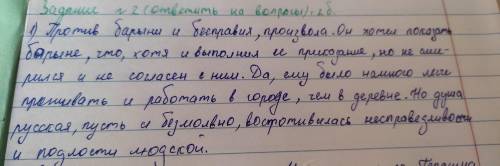 Задание №2 (ответить на вопросы). 2б.
1) Против барыни и бесправия, произвола. Он хотел показать
барыне, что, хотя и выполнил ее приказание, но не сми-
рился и не согласен с ним. Да, ему было намного легче
проживать и работать в городе, чем в деревне. Но душа
русская, пусть и безмолвно, воспротивилась несправедливости
и подлости людской.